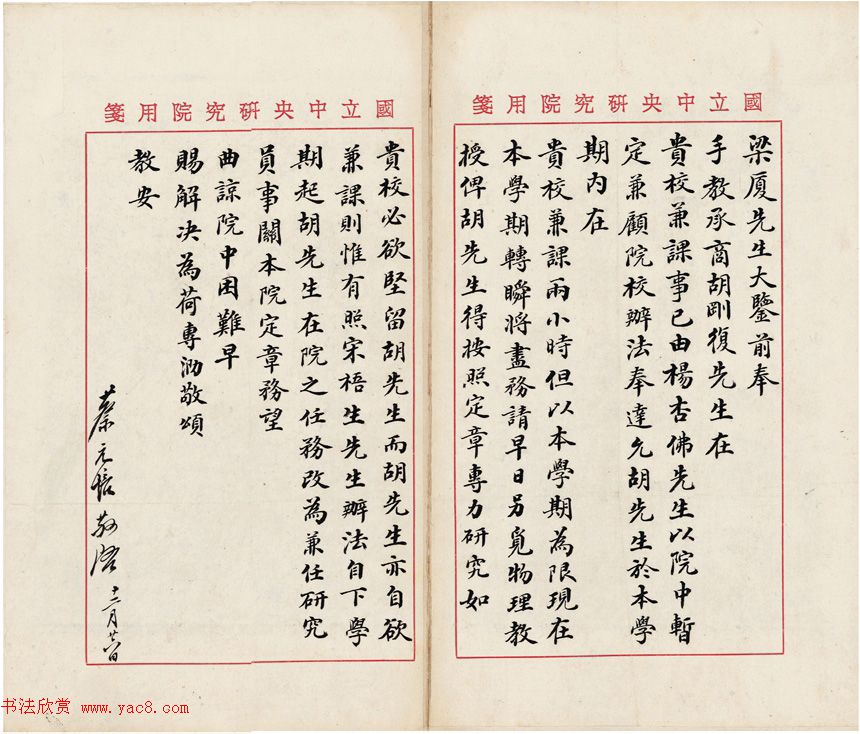 國立中央研究院用箋
梁厦先生大鑒前奉
手教承商胡剛復先生在
貴校兼課事已由楊杏佛先生以院中暫
定兼顧院校辦法奉達允胡先生於本學
期內在
貴校兼課兩小時但以本學期為限現在
本學期轉瞬將盡務請早日另覓物理教
授俾胡先生得按照定章專力研究如
國立中央研究院用箋
貴校必欲堅留胡先生而胡先生亦自欲
兼課則惟有照宋梧生先生辦法自下學
期起胡先生在院之任務改為兼任研究
員事關本院定章務望
曲諒院中困難早
賜解決為荷專泐敬頌
教安
蔡元培敬啓
十二月廿六日
书法欣赏 www.yac8.com